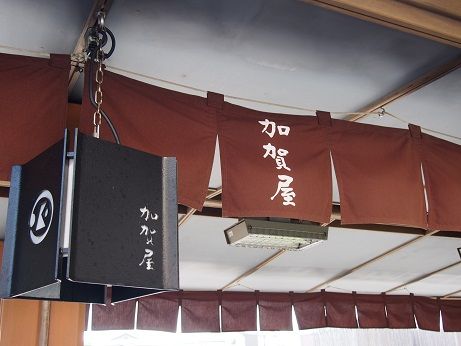 加賀屋
加賀屋